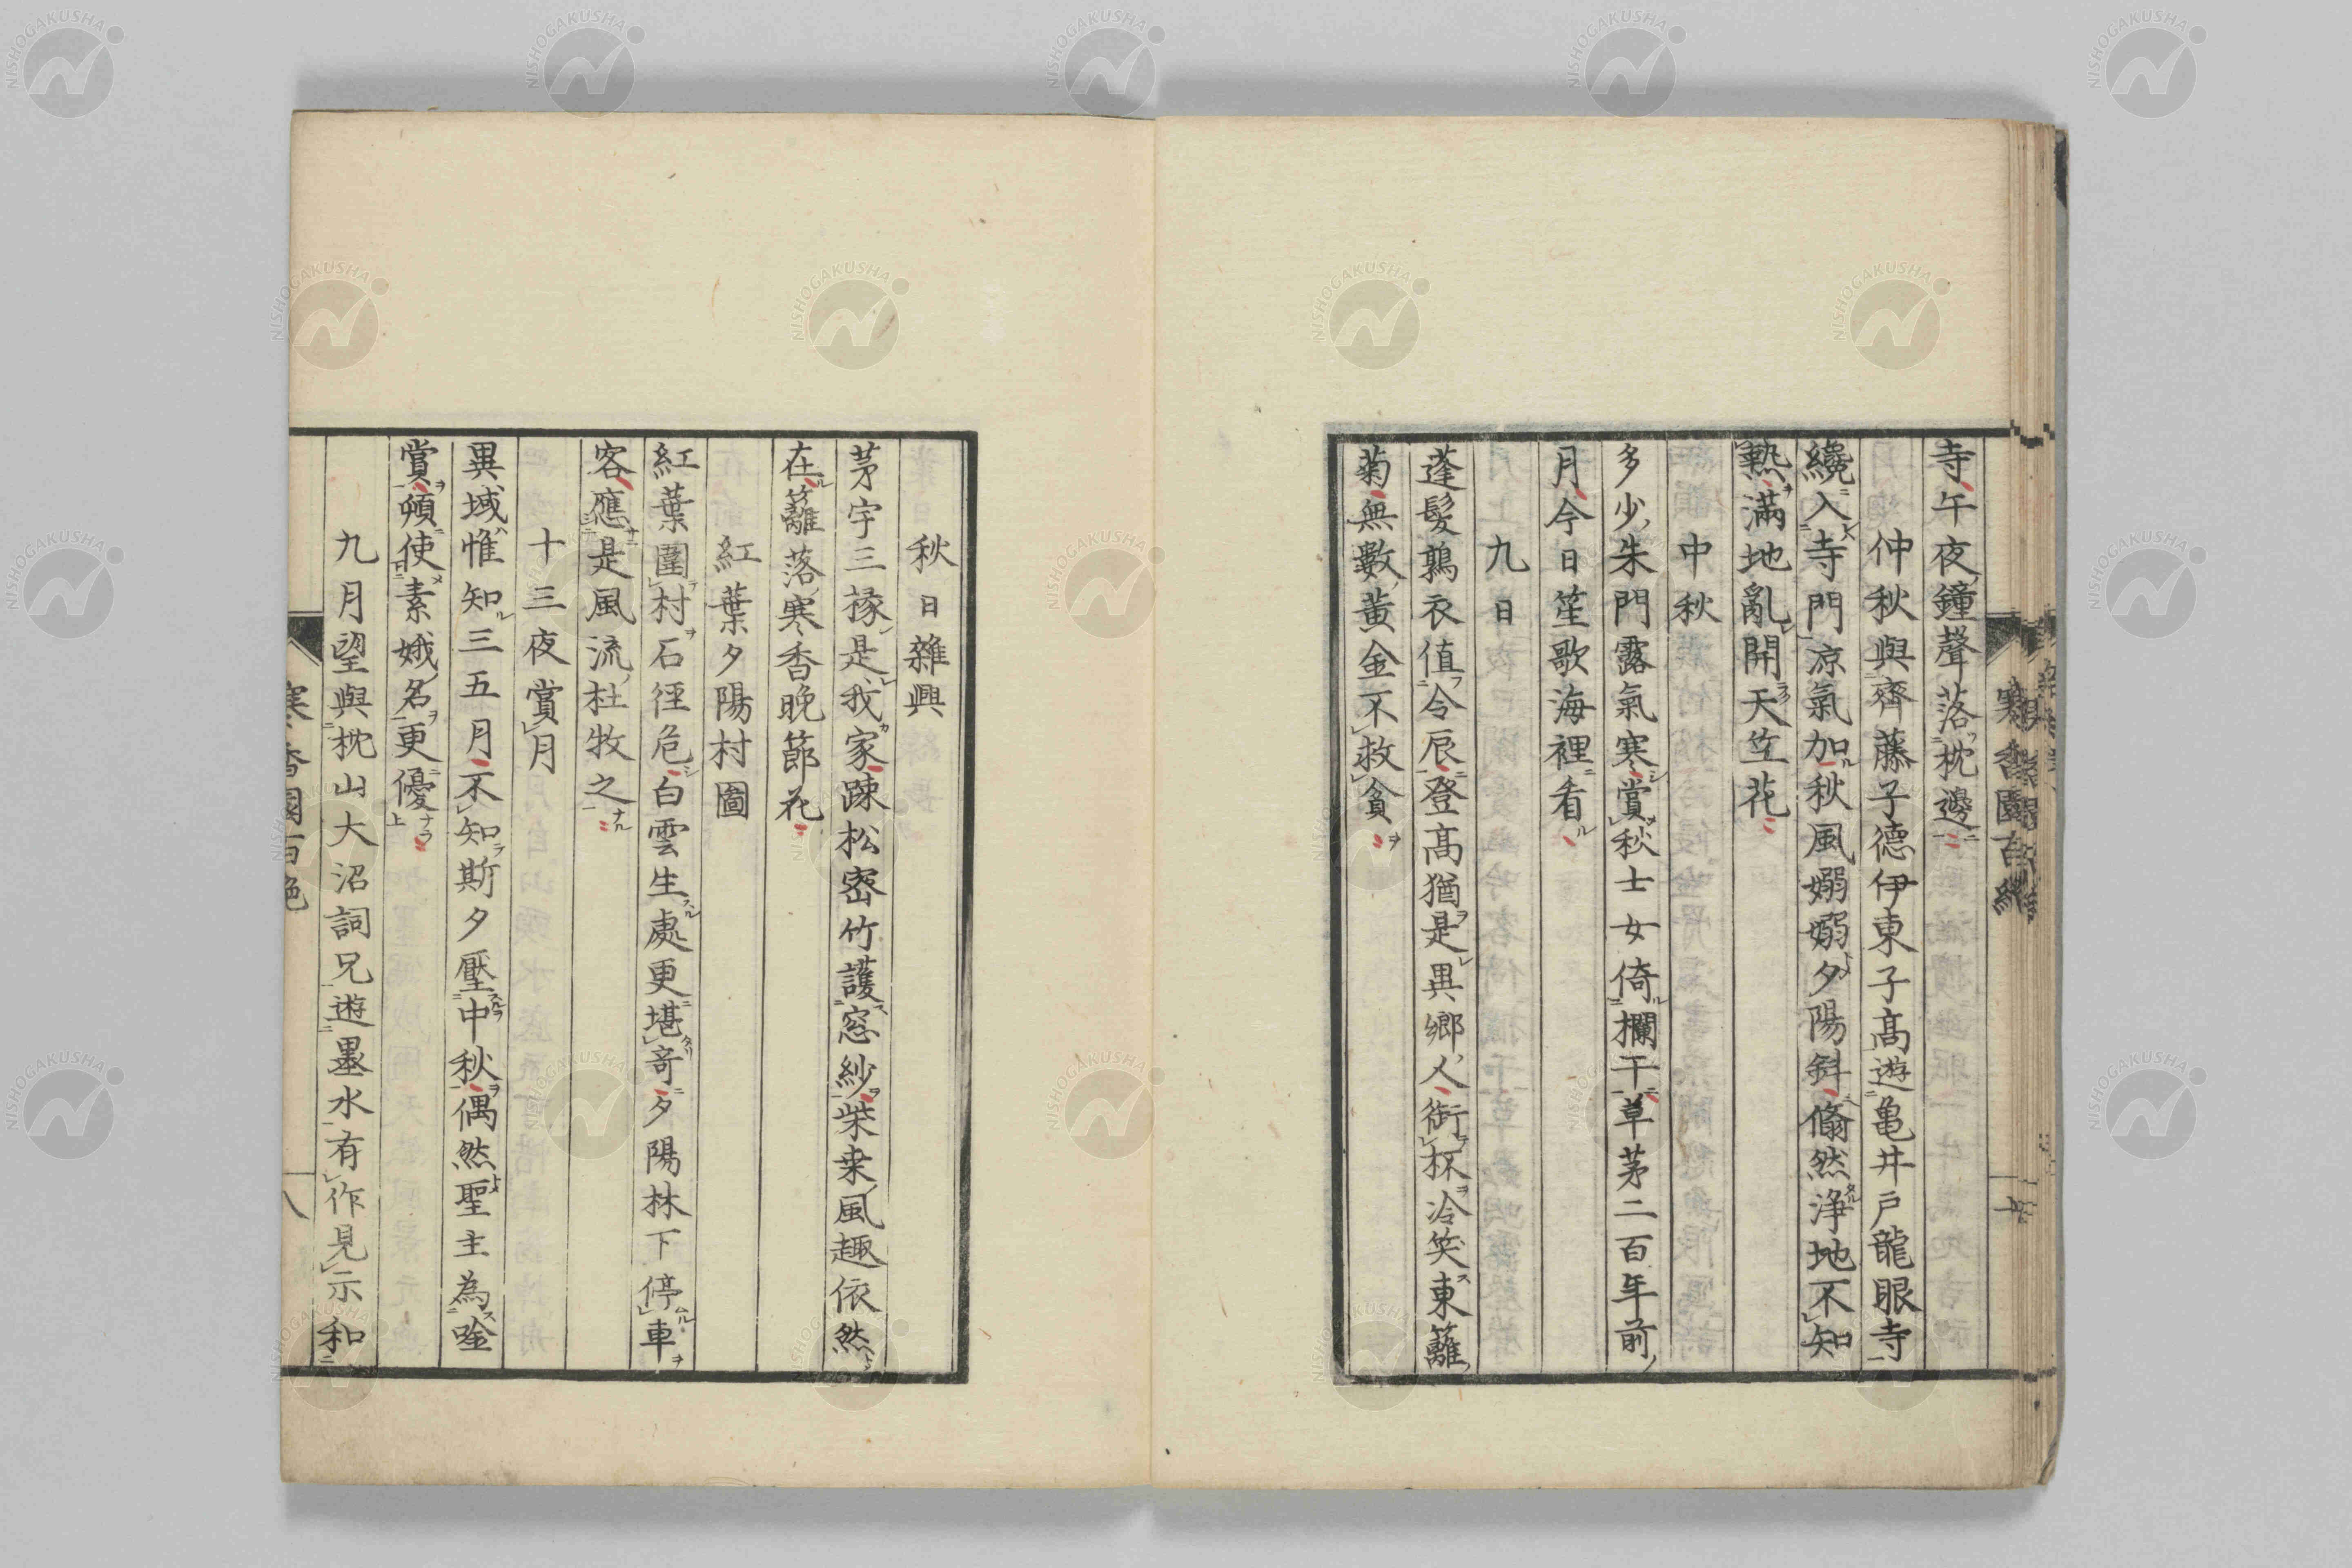 寺午夜鐘聲落枕邊
仲秋與齊藤子德伊東子高遊亀井戸龍眼寺
纔入寺門涼氣加秋風嫋嫋夕陽斜翛然浄地不知
熱滿地亂開天竺花
中秋
多少朱門露氣寒賞秋士女倚欄干草茅二百年前
月今日笙歌海裡看
九日
蓬髮鶉衣値令辰登高猶是異鄉人銜杯冷笑東籬
菊無數黃金不救貧
秋日雜興
茅宇三椽是我家踈松密竹護窓紗柴桒風趣依然
在籬落寒香晚節花
紅葉夕陽村圖
紅葉圍村石徑危白雲生處更堪奇夕陽林下停車
客應是風流杜牧之
十三夜賞月
異域惟知三五月不知斯夕壓中秋偶然聖主為唫
賞頓使素娥名更優
九月望與枕山大沼詞兄遊墨水有作見示和
寒香園百絶
八
NISHOGAKUSHA